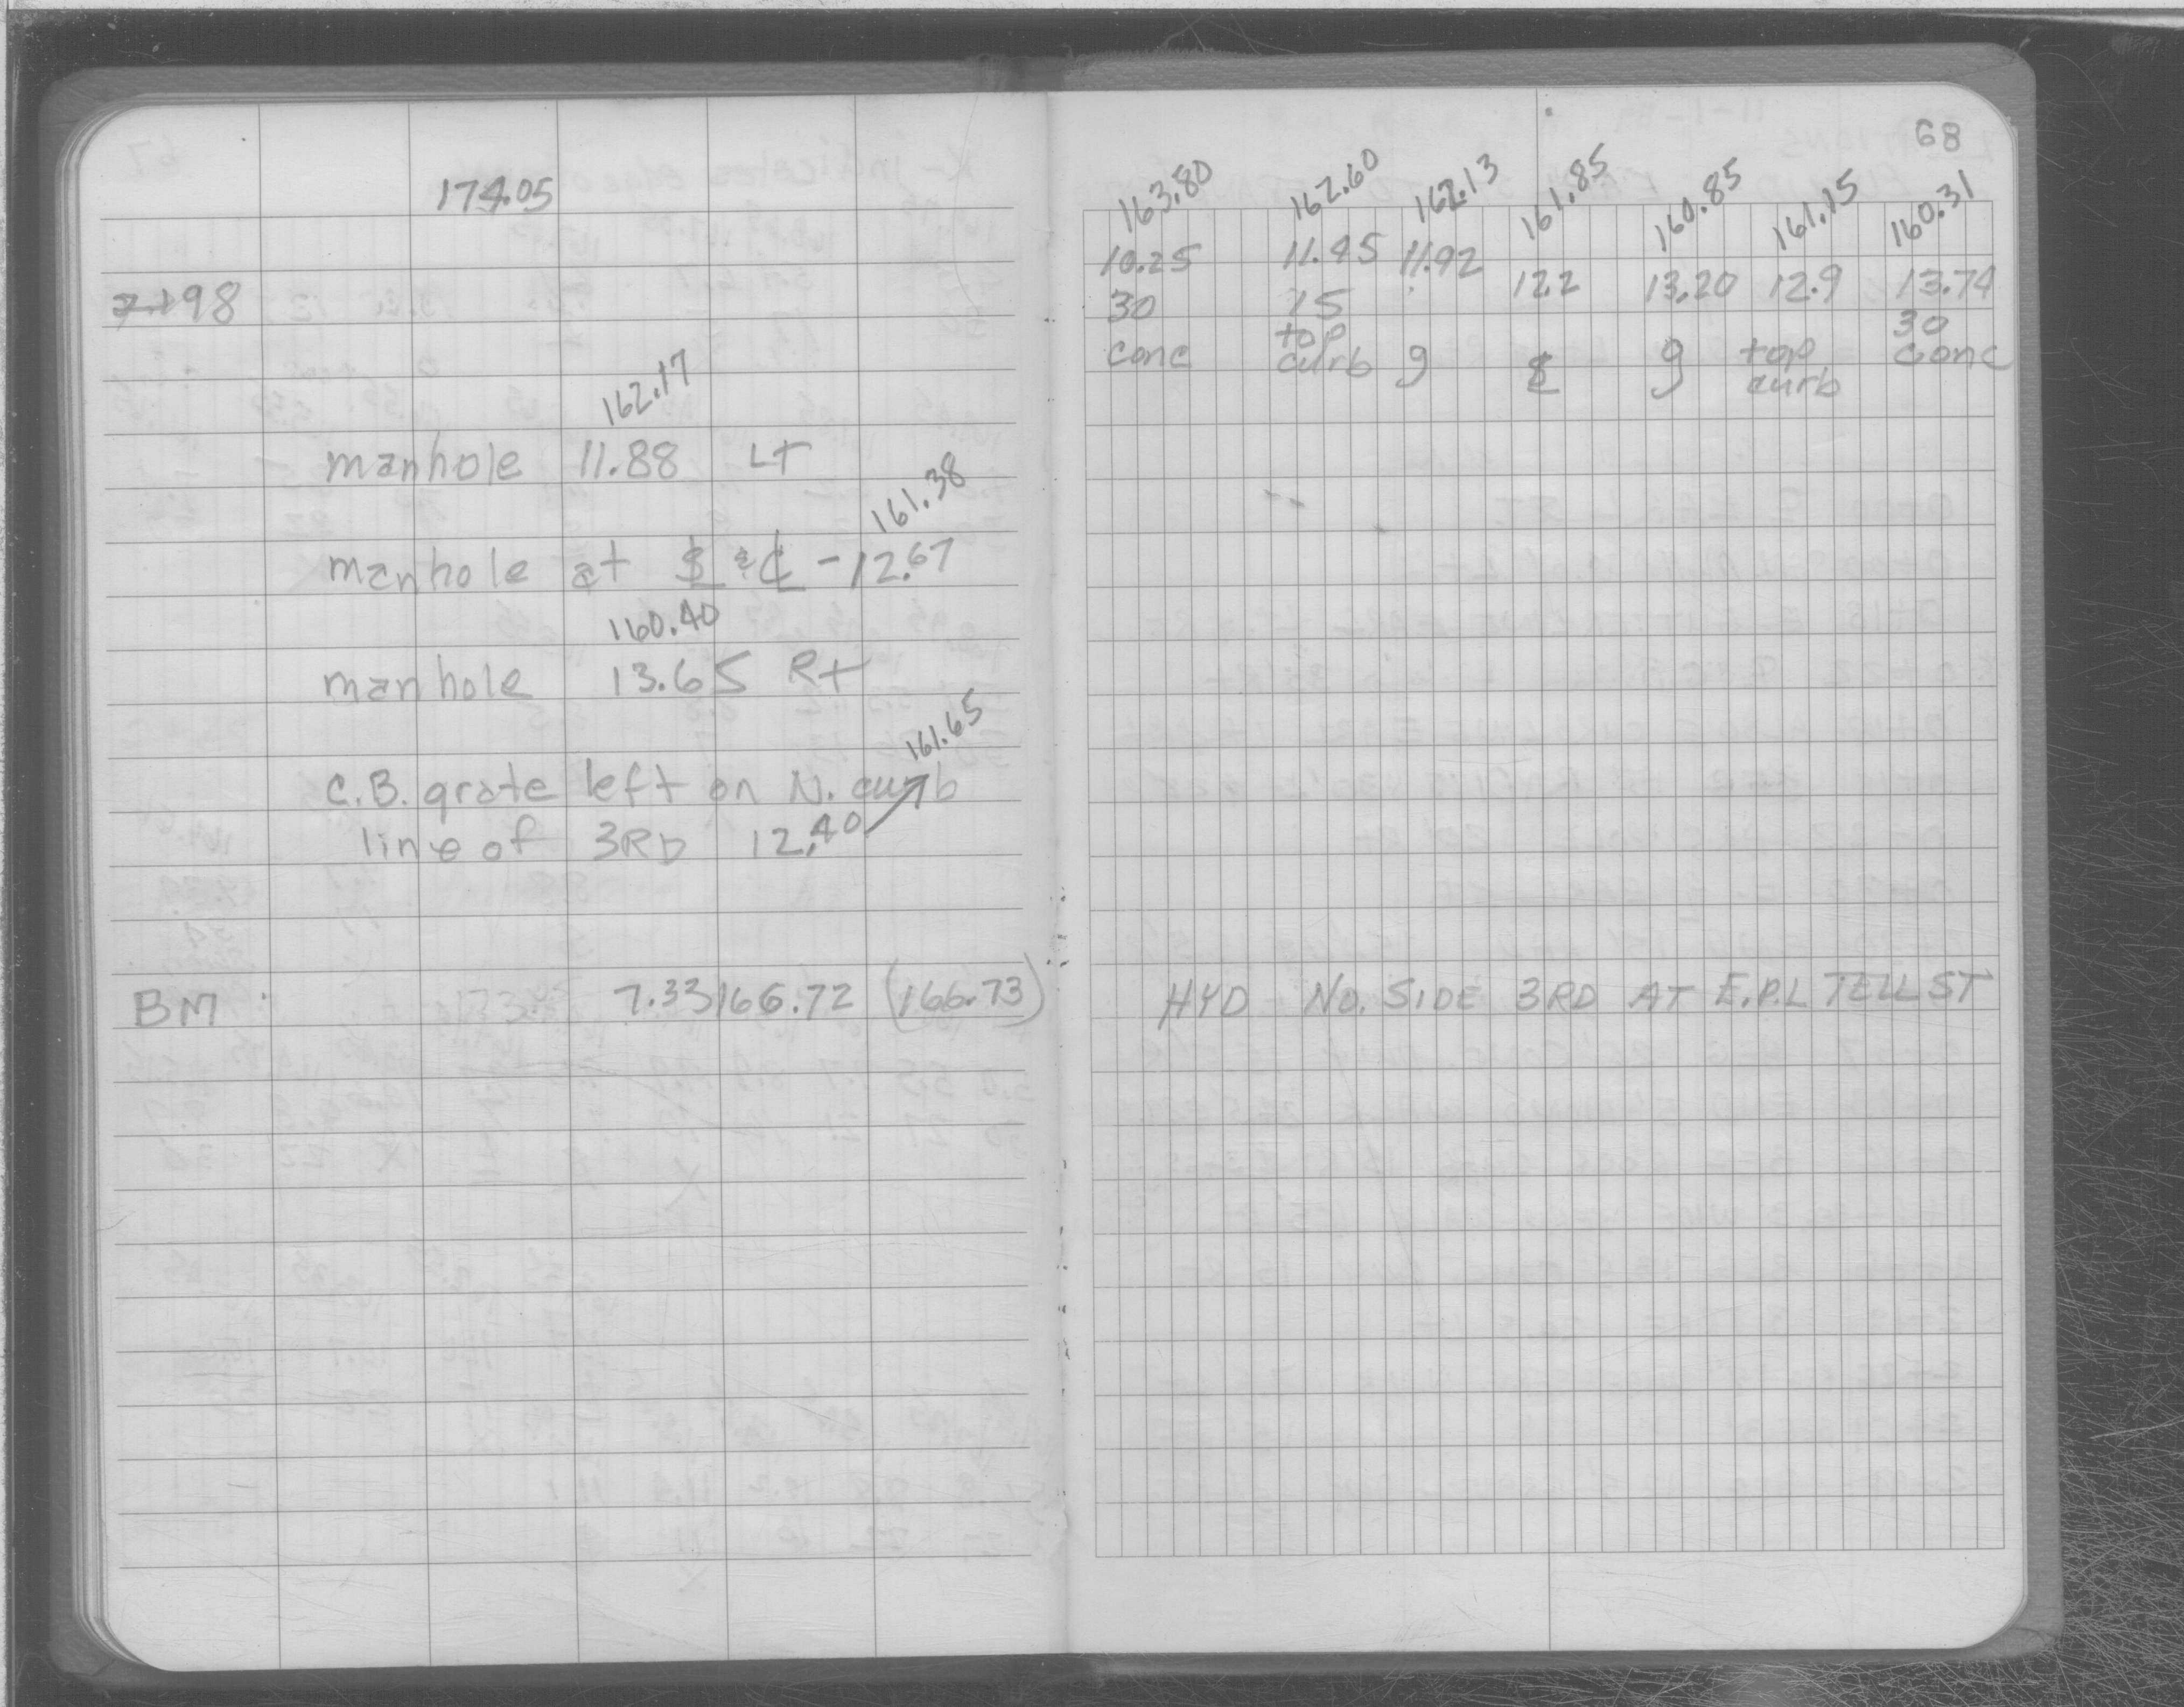 174.05
7+98
162.17
manhole 11.88 LT
161.38
manhole at ⅊ & ℄ - 12.67
160.40
manhole 13.65 Rt
161.65
C.B. grate left on N. curb
line of 3RD 12.40
BM 7.33 166.72 (166.73)
68
163.80 162.60 162.13 161.85 160.85 161.15 160.31
10.25 11.45 11.92 12.2 13.20 12.9 13.74
30 15 30
conc top curb g ℄ g top curb conc
HYD NO. SIDE 3RD AT E.P.L TELL ST